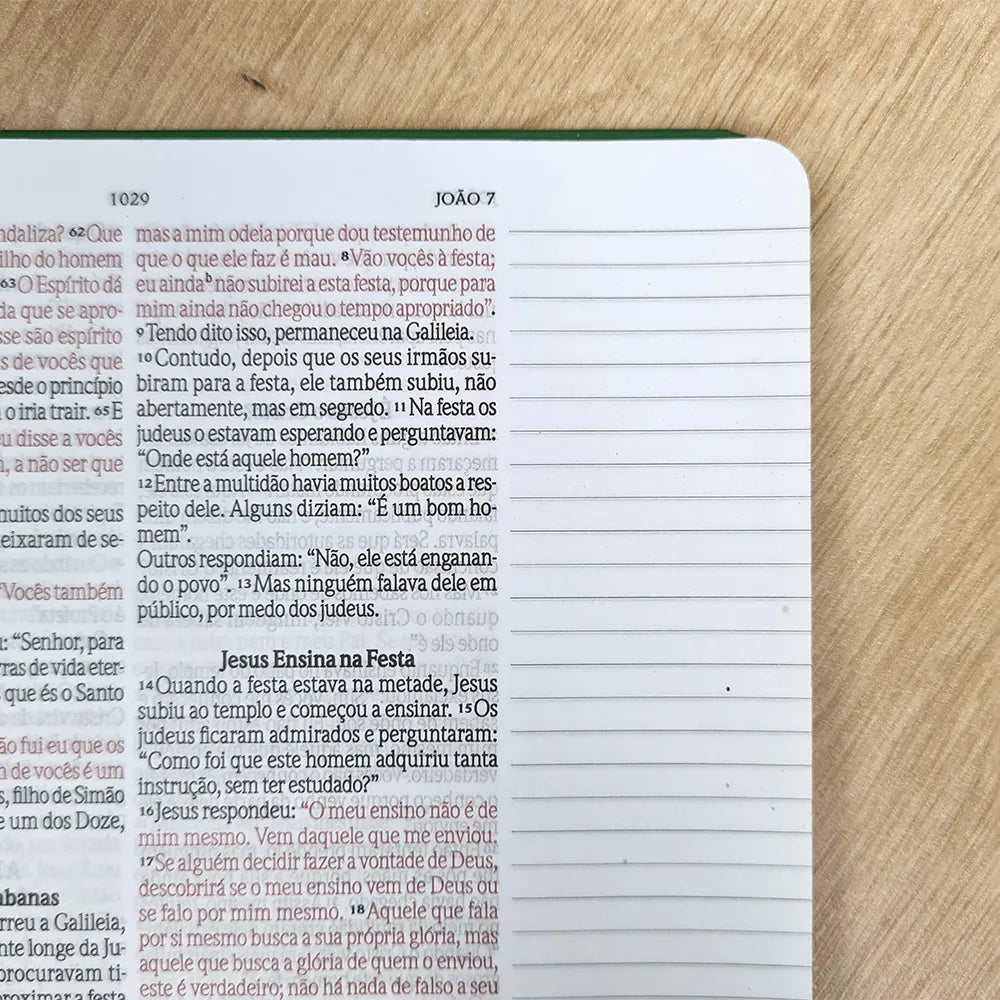 1029
JOÃO 7
ndaliza? 62Que
ilho do homem
63O Espírito dá
da que se apro-
sse são espírito
s de vocês que
esde o princípio
o iria trair. 65E
u disse a vocês
, a não ser que
muitos dos seus
eixaram de se-
“Vocês também
: “Senhor, para
ras de vida eter-
que és o Santo
ão fui eu que os
m de vocês é um
s, filho de Simão
e um dos Doze,
abanas
rreu a Galileia,
nte longe da Ju-
procuravam ti-
proximar a festa
mas a mim odeia porque dou testemunho de
que o que ele faz é mau. 8Vão vocês à festa;
eu ainda b não subirei a esta festa, porque para
mim ainda não chegou o tempo apropriado”.
9Tendo dito isso, permaneceu na Galileia.
10Contudo, depois que os seus irmãos su-
biram para a festa, ele também subiu, não
abertamente, mas em segredo. 11Na festa os
judeus o estavam esperando e perguntavam:
“Onde está aquele homem?”
12Entre a multidão havia muitos boatos a res-
peito dele. Alguns diziam: “É um bom ho-
mem”.
Outros respondiam: “Não, ele está enganan-
do o povo”. 13Mas ninguém falava dele em
público, por medo dos judeus.
Jesus Ensina na Festa
14Quando a festa estava na metade, Jesus
subiu ao templo e começou a ensinar. 15Os
judeus ficaram admirados e perguntaram:
“Como foi que este homem adquiriu tanta
instrução, sem ter estudado?”
16Jesus respondeu: “O meu ensino não é de
mim mesmo. Vem daquele que me enviou.
17Se alguém decidir fazer a vontade de Deus,
descobrirá se o meu ensino vem de Deus ou
se falo por mim mesmo. 18Aquele que fala
por si mesmo busca a sua própria glória, mas
aquele que busca a glória de quem o enviou,
este é verdadeiro; não há nada de falso a seu